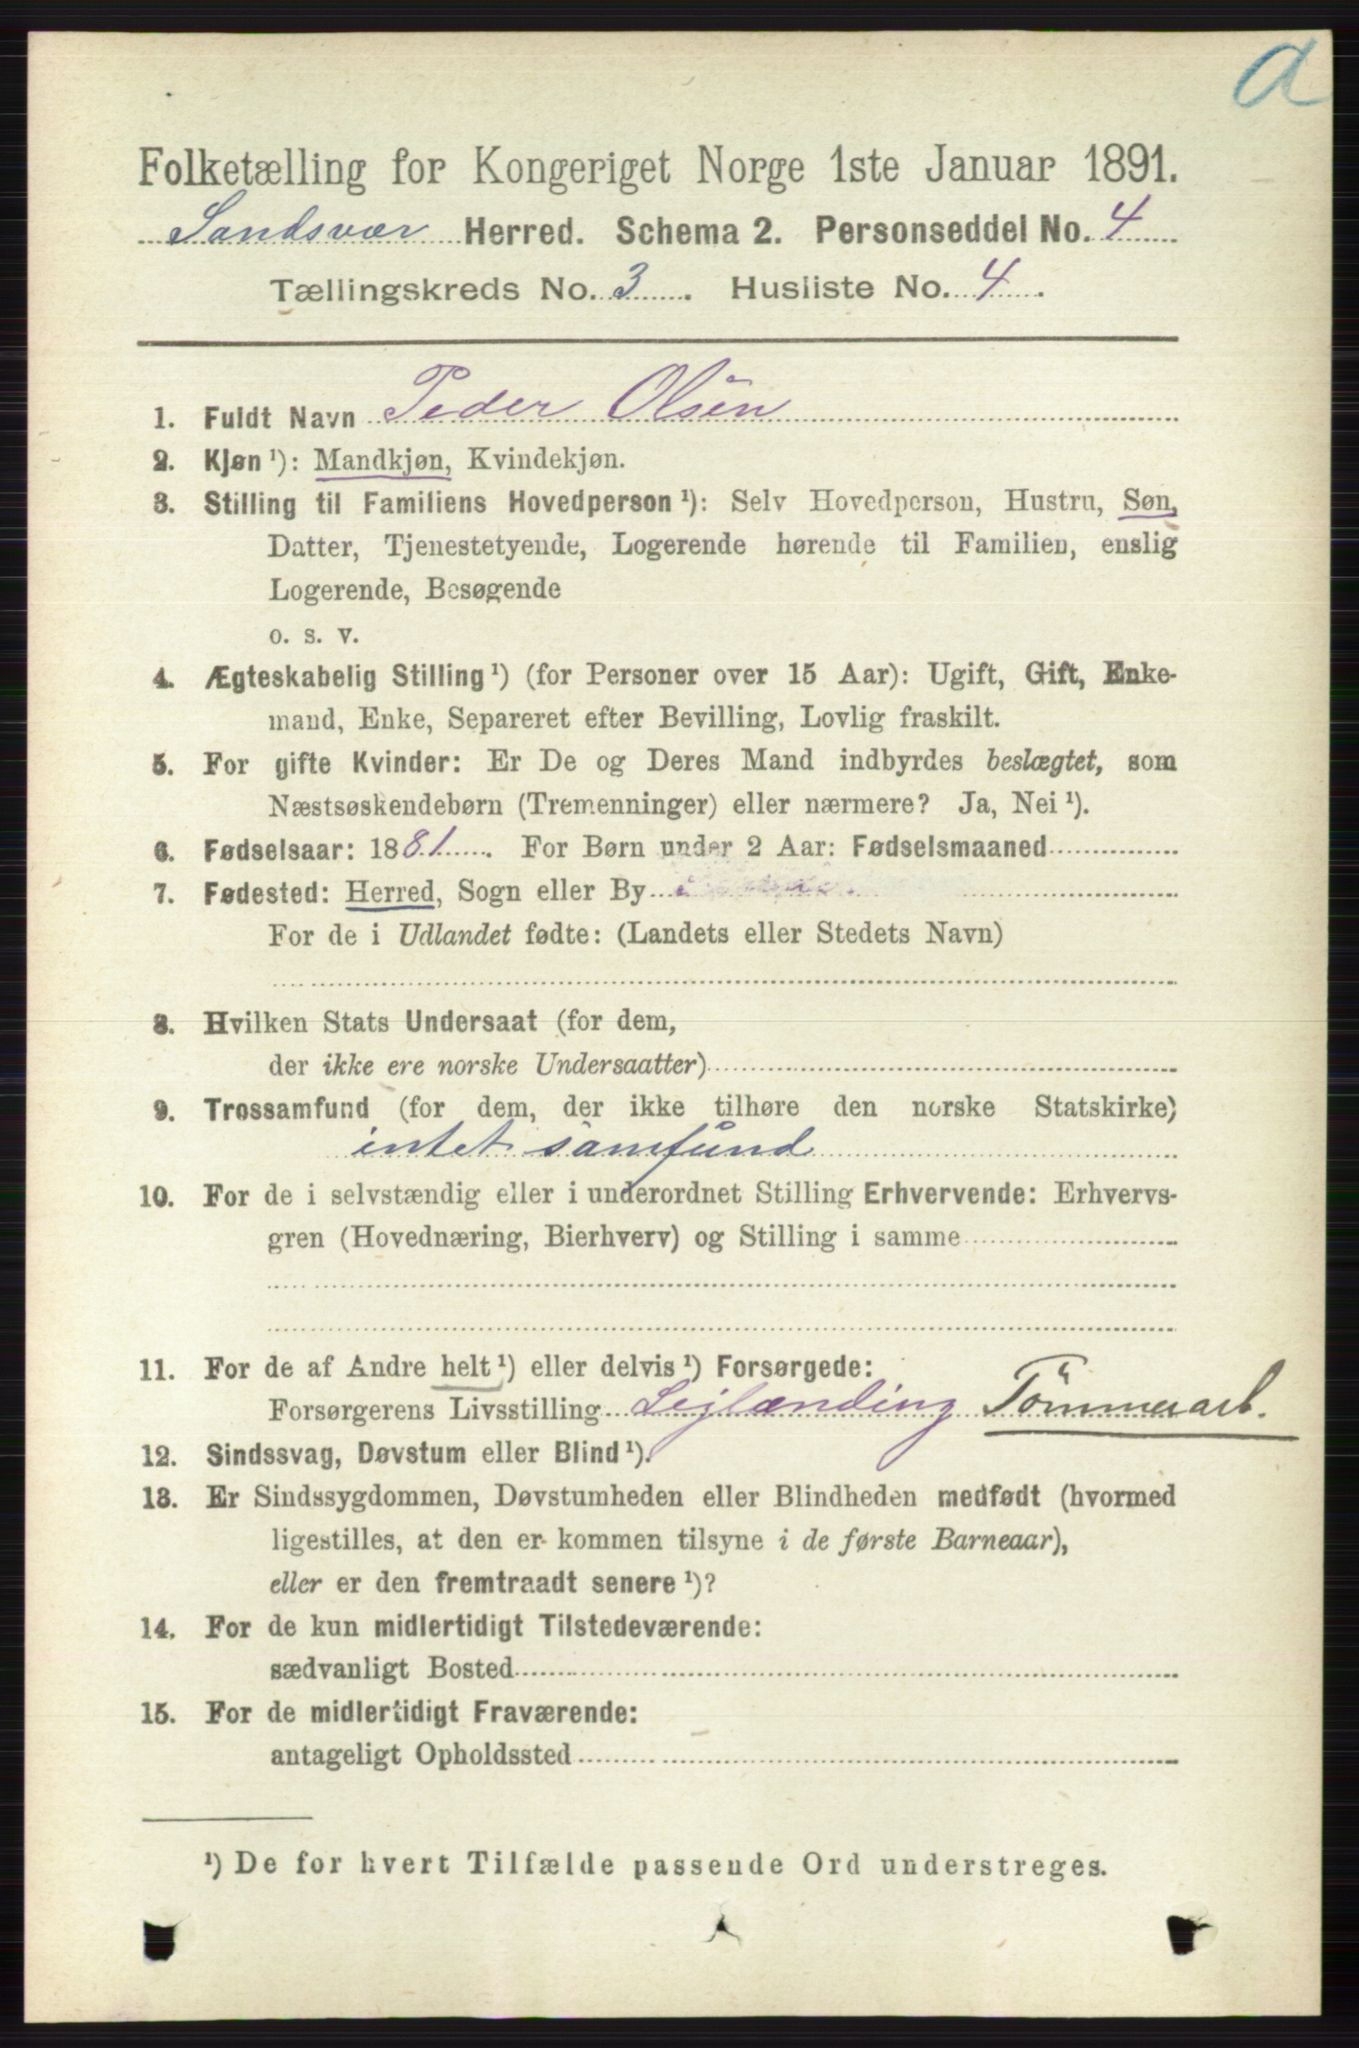 a
Folketælling for Kongeriget Norge 1ste Januar 1891.
Sandsvær Herred. Schema 2. Personseddel No. 4
Tællingskreds No. 3. Husliste No. 4.
1. Fuldt Navn Peder Olsen
2. Kjøn ¹): Mandkjøn, Kvindekjøn.
3. Stilling til Familiens Hovedperson ¹): Selv Hovedperson, Hustru, Søn,
Datter, Tjenestetyende, Logerende hørende til Familien, enslig
Logerende, Besøgende
o. s. v.
4. Ægteskabelig Stilling ¹) (for Personer over 15 Aar): Ugift, Gift, Enke-
mand, Enke, Separeret efter Bevilling, Lovlig fraskilt.
5. For gifte Kvinder: Er De og Deres Mand indbyrdes beslægtet, som
Næstsøskendebørn (Tremenninger) eller nærmere? Ja, Nei ¹).
6. Fødselsaar: 1881. For Børn under 2 Aar: Fødselsmaaned
7. Fødested: Herred, Sogn eller By
For de i Udlandet fødte: (Landets eller Stedets Navn)
8. Hvilken Stats Undersaat (for dem,
der ikke ere norske Undersaatter)
9. Trossamfund (for dem, der ikke tilhøre den norske Statskirke)
intet samfund
10. For de i selvstændig eller i underordnet Stilling Erhvervende: Erhvervs-
gren (Hovednæring, Bierhverv) og Stilling i samme
11. For de af Andre helt ¹) eller delvis ¹) Forsørgede:
Forsørgerens Livsstilling Leglænding Tömmerarb.
12. Sindssvag, Døvstum eller Blind ¹).
13. Er Sindssygdommen, Døvstumheden eller Blindheden medfødt (hvormed
ligestilles, at den er kommen tilsyne i de første Barneaar),
eller er den fremtraadt senere ¹)?
14. For de kun midlertidigt Tilstedeværende:
sædvanligt Bosted
15. For de midlertidigt Fraværende:
antageligt Opholdssted
¹) De for hvert Tilfælde passende Ord understreges.